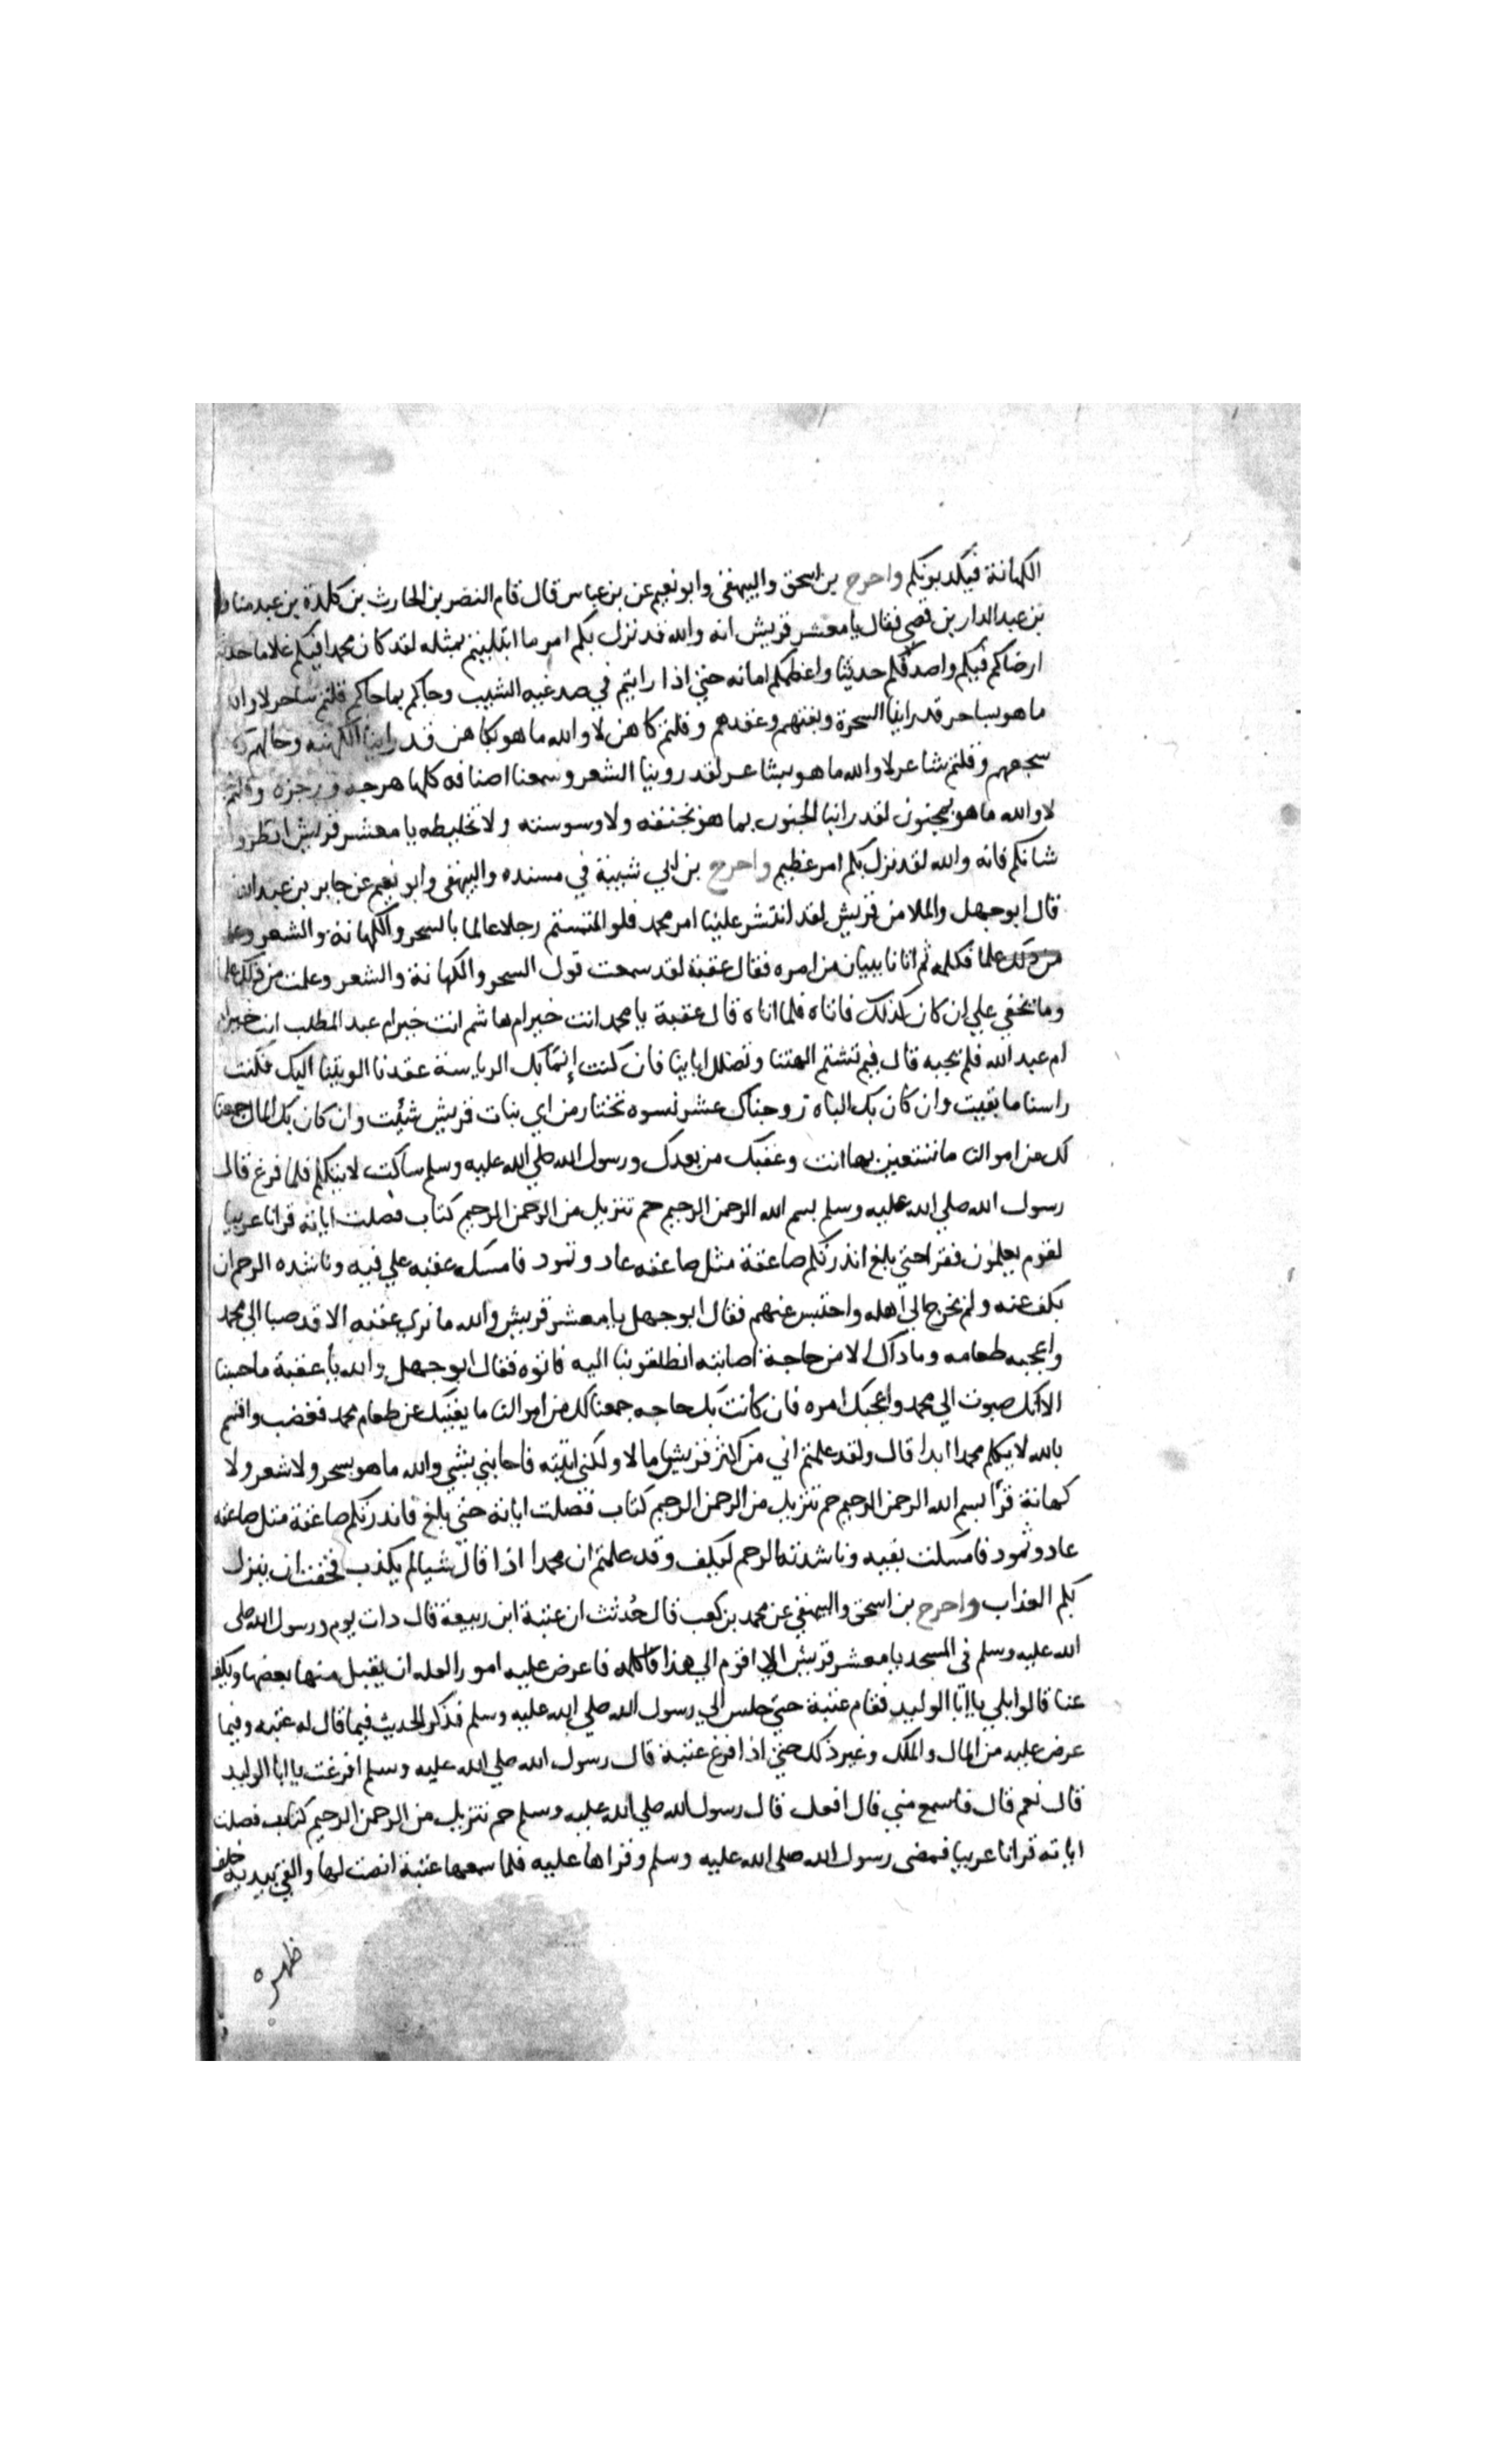 الكهانة فيكذبونكم واخرج بن اسحق والبيهقي وابو نعيم عن بن عباس قال قام النضر بن الحارث بن كلدة بن عبد مناف
بن عبد الدار بن قصي فقال يا معشر قريش انه والله قد نزل بكم امر ما ابتليتم بمثله لقد كان محمد فيكم غلاما حدثا
ارضاكم فيكم واصدقكم حديثا واعظمكم امانه حتي اذا رايتم في صدغيه الشيب وجاكم بما جاكم قلتم ساحر لا والله
ما هو بساحر قد راينا السحرة ونفثهم وعقدهم وقلتم كاهن لا والله ما هو بكاهن قد راينا الكهنه وحالهم
سجعهم وقلتم شاعر لا والله ما هو بشاعر لقد روينا الشعر وسمعنا اصنافه كلها هرجه ورجزه وقلتم
لا والله ما هو بمجنون لقد راينا الجنون بما هو بخنقه ولا وسوسته ولا تخليطه يا معشر قريش انظروا
شانكم فانه والله لقد نزل بكم امر عظيم واخرج بن ابي شيبة في مسنده والبيهقي وابو نعيم عن جابر بن عبد الله
قال ابو جهل والملا من قريش لقد انتشر علينا امر محمد فلو التمستم رجلا عالما بالسحر والكهانة والشعر
من ذلك علما فكلمه ثم اتانا ببيان من امره فقال عقبة لقد سمعت قول السحر والكهانة والشعر وعلمت من ذلك علما
وما يخفي علي ان كان كذلك فاتاه فلما اتاه قال عقبة يا محمد انت خير ام هاشم انت خير ام عبد المطلب انت خير
ام عبد الله فلم يجبه قال فيم تشتم الهتنا وتضلل ابابنا فان كنت إنما بك الرياسة عقدنا الويتنا اليك فكنت
راسنا ما بقيت وان كان بك الباه زوجناك عشر نسوه تختار من اي بنات قريش شئت وان كان بك المال جمعنا
لك من اموالنا ما تستعين بها انت وعقبك من بعدك ورسول الله صلي الله عليه وسلم ساكت لا يتكلم فلما فرغ قال
رسول الله صلي الله عليه وسلم بسم الله الرحمن الرحيم حم تنزيل من الرحمن الرحيم كتاب فصلت اياته قرانا عربيا
لقوم يعلمون فقرا حتي بلغ انذرتكم صاعقة مثل صاعقه عاد وثمود فامسك عقبه علي فيه وناشده الرحم ان
يكف عنه ولم يخرج الي اهله واحتبس عنهم فقال ابو جهل يا معشر قريش والله ما نري عقبه الا قد صبا الي محمد
واعجبه طعامه وما ذاك الا من حاجة اصابته انطلقوا بنا اليه فاتوه فقال ابو جهل والله يا عقبة ما حبسنا
الا انك صبوت الي محمد واعجبك امره فان كانت بك حاجه جمعنا لك من اموالنا ما يغنيك عن طعام محمد فغضب واقسم
بالله لا يكلم محمدا ابدا قال ولقد علمتم اني من اكثر قريش مالا ولكني اتيته فاجابني بشي والله ما هو بسحر ولا شعر ولا
كهانة قرأ بسم الله الرحمن الرحيم حم تنزيل من الرحمن الرحيم كتاب فصلت اياته حتي بلغ فانذرتكم صاعقة مثل صاعقه
عاد وثمود فامسكت بفيه وناشدته الرحم ليكف وقد علمتم ان محمدا اذا قال شيا لم يكذب فخفت ان ينزل
بكم العذاب واخرج بن اسحق والبيهقي عن محمد بن كعب قال حُدثث ان عتبة ابن ربيعة قال دات يوم ورسول الله صلي
الله عليه وسلم في المسجد يا معشر قريش الا اقوم الي هذا فاكلمه فاعرض عليه امورا لعله ان يقبل منها بعضها ويكف
عنا قالوا بلي يا ابا الوليد فقام عتبة حتي جلس الي رسول الله صلي الله عليه وسلم فذكر الحديث فيما قال له عتبه وفيما
عرض عليه من المال والملك وغير ذلك حتي اذا فرغ عتبة قال رسول الله صلي الله عليه وسلم افرغت يا ابا الوليد
قال نعم قال فاسمع مني قال افعل قال رسول الله صلي الله عليه وسلم حم تنزيل من الرحمن الرحيم كتاب فصلت
اياته قرانا عربيا فمضي رسول الله صلي الله عليه وسلم وقراها عليه فلما سمعها عتبة انصت لها والقي بيديه خلف
ظهره